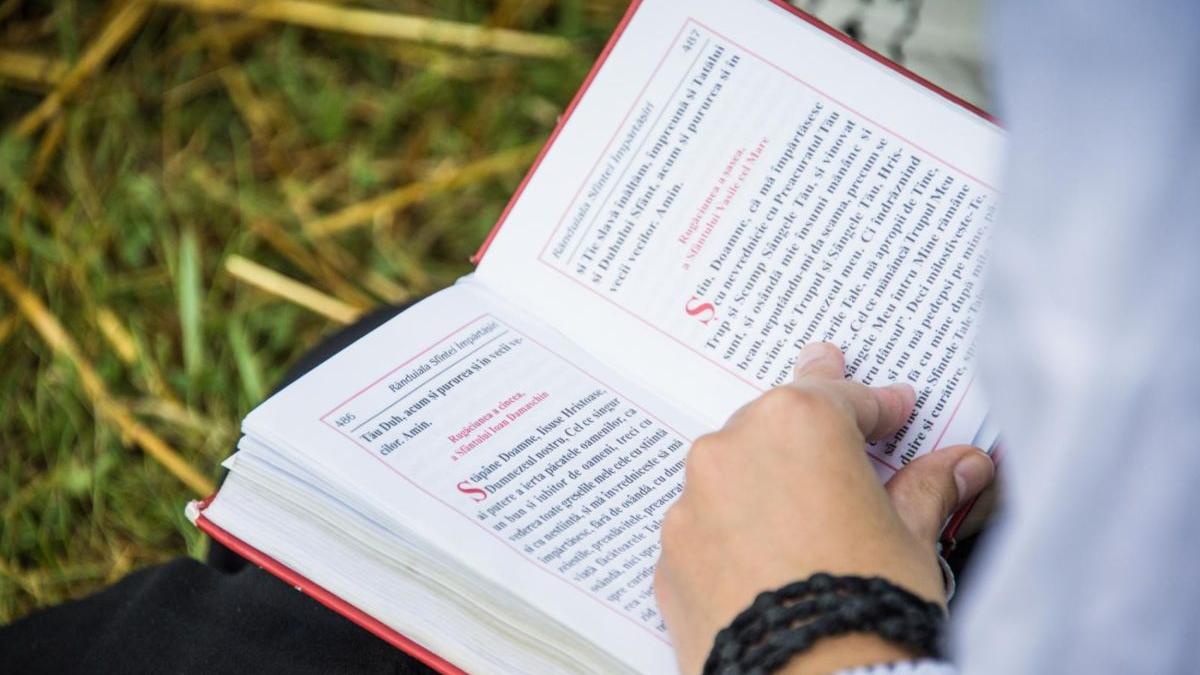 486
Rânduiala Sfintei Împărtășiri
Tău Duh, acum și pururea și în vecii ve-
cilor. Amin.
Rugăciunea a cincea,
a Sfântului Ioan Damaschin
Stăpâne Doamne, Iisuse Hristoase,
Dumnezeul nostru, Cel ce singur
ai putere a ierta păcatele oamenilor, ca
un bun și iubitor de oameni, treci cu
vederea toate greșelile mele cele cu știință
și cu neștiință, și mă învrednicește să mă
împărtășesc, fără de osândă, cu dum
zeieștile, preaslăvitele, preacurat
viață făcătoarele Tale
osândă, nici spre
spre curăți
rea vieț
zid
Rânduiala Sfintei Împărtășiri
487
și Ție slavă înălțăm, împreună și Tatălui
și Duhului Sfânt, acum și pururea și în
vecii vecilor. Amin.
Rugăciunea a șasea,
a Sfântului Vasile cel Mare
Știu, Doamne, că mă împărtășesc
cu nevrednicie cu Preacuratul Tău
Trup și Scump Sângele Tău, și vinovat
sunt și osândă mie însumi mănânc și
beau, neputându-mi da seama, precum se
cuvine, de Trupul și Sângele Tău, Hris-
toase, Dumnezeul meu. Ci îndrăznind
rările Tale, mă apropii de Tine,
Cel ce mănâncă Trupul Meu
ângele Meu întru Mine rămâne
tru dânsul". Deci milostivește-Te,
și nu mă pedepsi pe mine, pă
fă cu mine după m
mie Sfintele Tale T
și curățire
duire